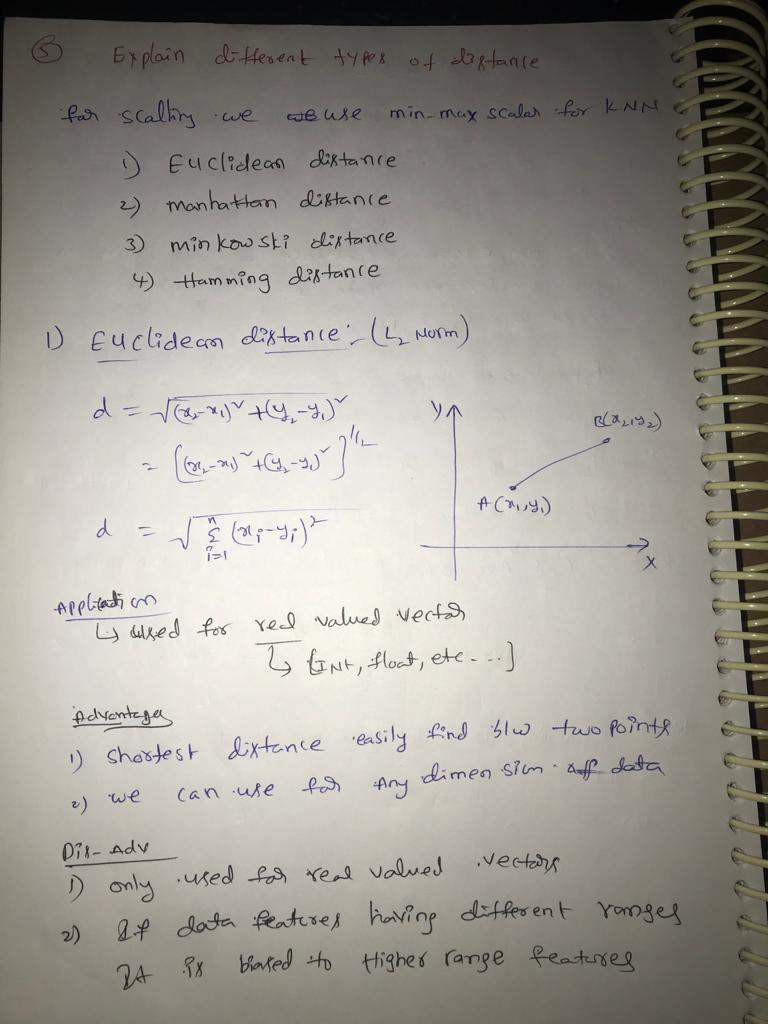 5 Explain different types of distance
for scaling we use min-max scalar for KNN
1) Euclidean distance
2) manhattan distance
3) minkowski distance
4) Hamming distance
1) Euclidean distance:- (L₂ Norm)
d = √(x₂-x₁)² + (y₂-y₁)²
= [(x₂-x₁)² + (y₂-y₁)²]^1/2
d = √ Σ i=1 n (xi-yi)²
Y
B(x₂,y₂)
A(x₁,y₁)
X
Application
↳ used for real valued vector
↳ [INt, float, etc....]
Advantages
1) shortest distance easily find b/w two points
2) we can use for Any dimension off data
Dis-Adv
1) only used for real valued vectors
2) If data features having different ranges
It is biased to Higher range features